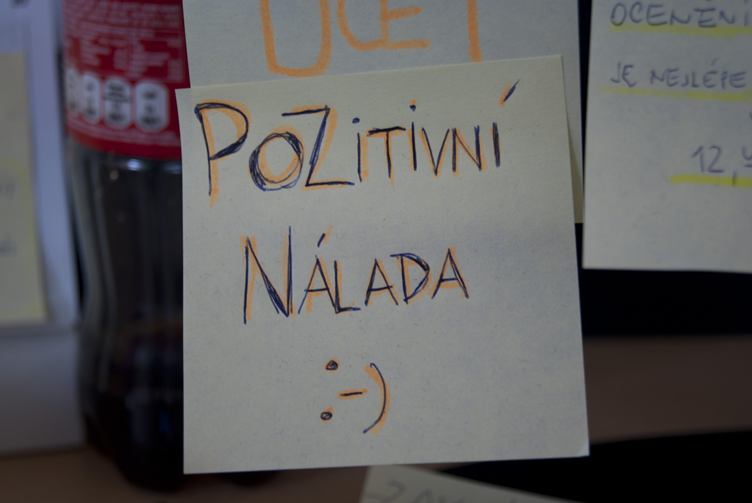 ÚČET
OCENĚNÍ
JE NEJLÉPE
12,
POZITIVNÍ
NÁLADA
:-)